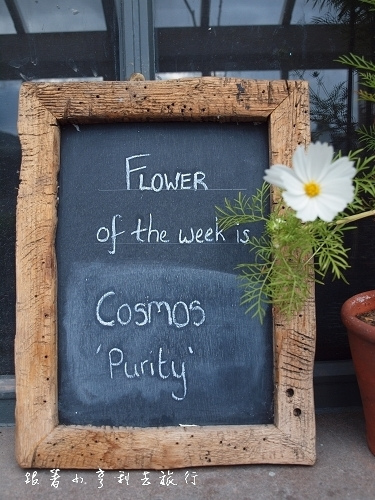 FLOWER
of the week is
Cosmos
'Purity'
跟著小亨利去旅行